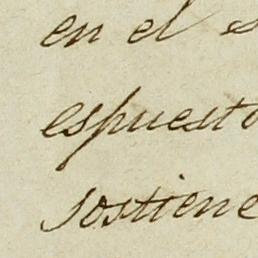 en el s
espuesto
sostiene